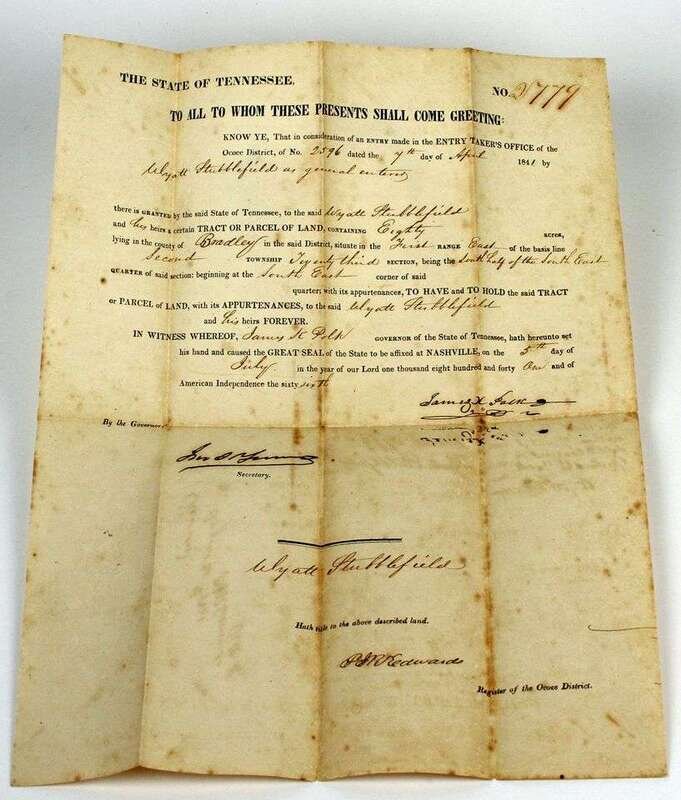 THE STATE OF TENNESSEE. NO. 2779
TO ALL TO WHOM THESE PRESENTS SHALL COME GREETING:
KNOW YE, That in consideration of an ENTRY made in the ENTRY TAKER'S OFFICE of the
Ocoee District, of No. 2596 dated the 7th day of April 1841 by
Wyatt Stubblefield as general enterer
there is GRANTED by the said State of Tennessee, to the said Wyatt Stubblefield
and his heirs a certain TRACT OR PARCEL OF LAND, CONTAINING Eighty acres,
lying in the county of Bradley in the said District, situate in the First RANGE East of the basis line
Second TOWNSHIP Twenty third SECTION, being the South half of the South East
QUARTER of said section: beginning at the South East corner of said
quarter: with its appurtenances, TO HAVE and TO HOLD the said TRACT
or PARCEL OF LAND, with its APPURTENANCES, to the said Wyatt Stubblefield
and his heirs FOREVER.
IN WITNESS WHEREOF, James K Polk GOVERNOR of the State of Tennessee, hath hereunto set
his hand and caused the GREAT SEAL of the State to be affixed at NASHVILLE, on the 5th day of
July in the year of our Lord one thousand eight hundred and forty One and of
American Independence the sixty sixth
James K Polk
By the Governor
Secretary.
Wyatt Stubblefield
Hath title to the above described land.
Edwards
Register of the Ocoee District.